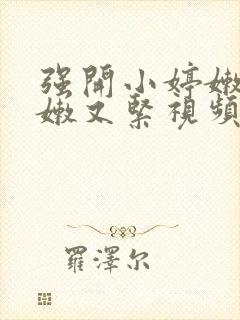 强開小婷嫩
嫩又緊視頻
羅澤尔